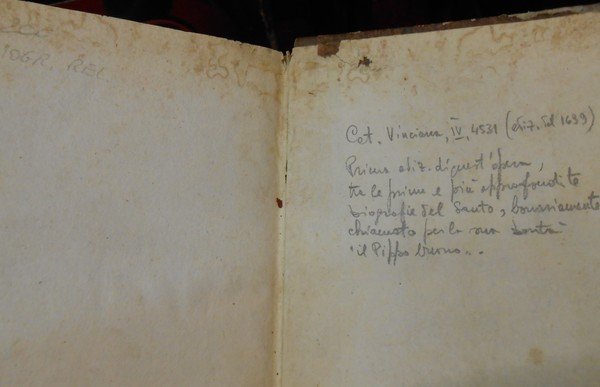 IOGR. REL.
Cat. Vinciana, IV, 4531 (ediz. del 1699)
Prima ediz. di quest'opera,
tra le prime e più approfondite
biografie del Santo, bonariamente
chiamato per la sua bontà
"il Pippo buono"..